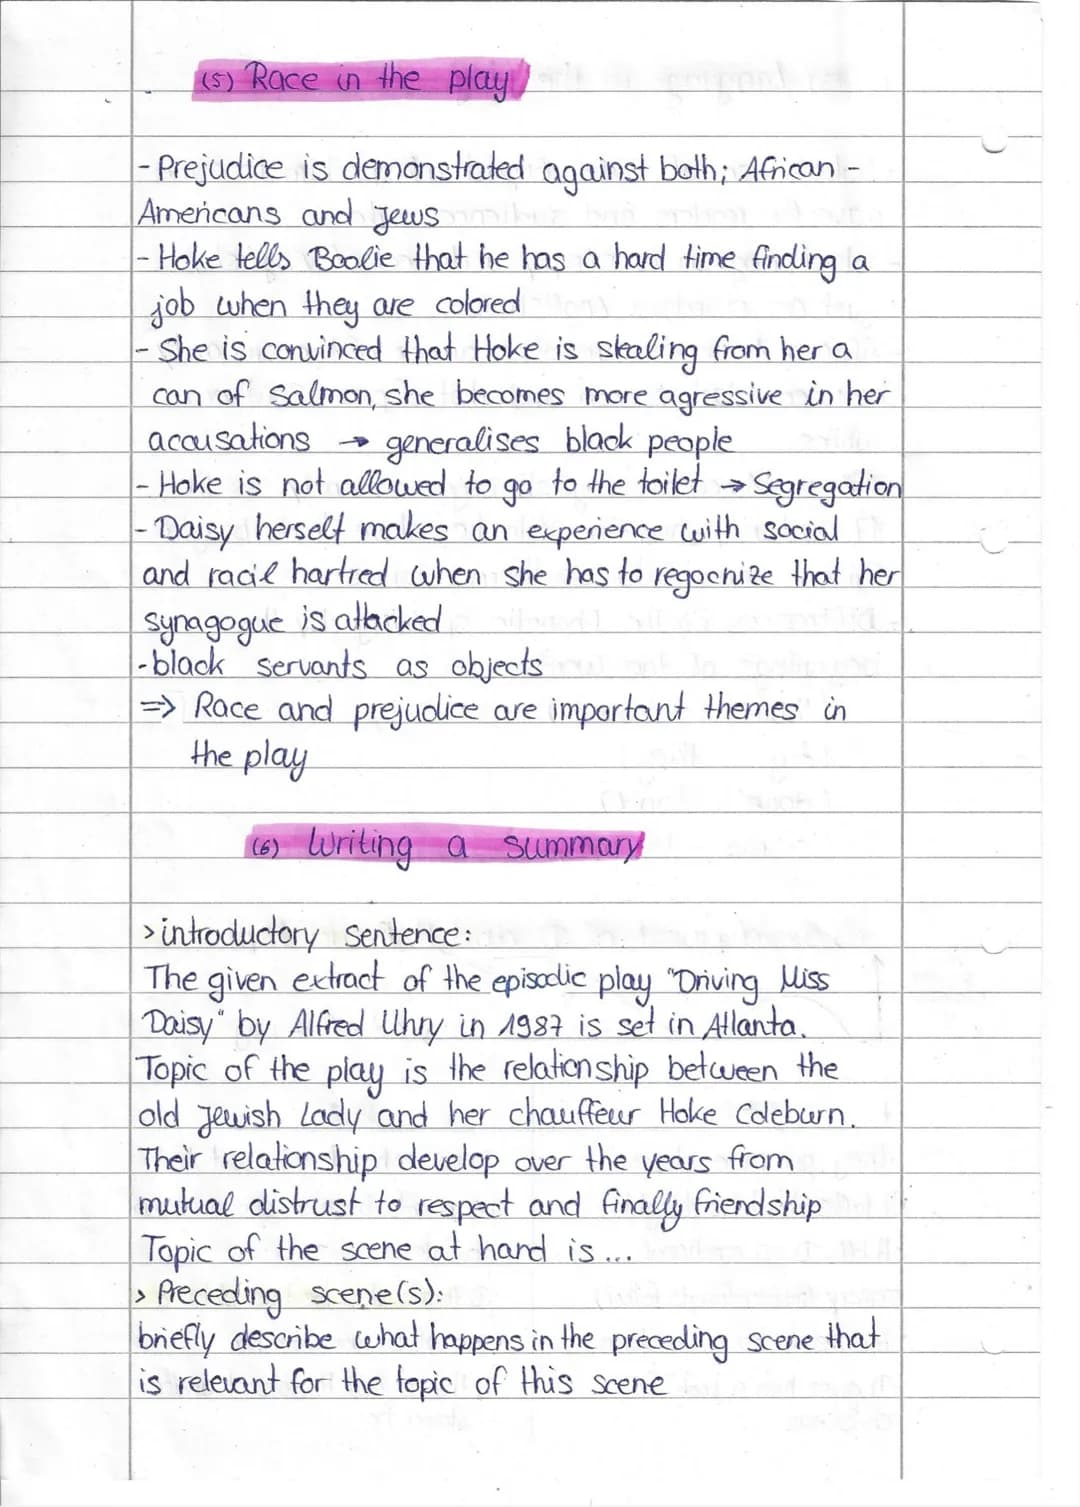 (5) Race in the play
- Prejudice is demonstrated against both; African-
Americans and Jews
- Hoke tells Boolie that he has a hard time finding a
job when they are colored
- She is convinced that Hoke is stealing from her a
can of Salmon, she becomes more agressive in her
accusations → generalises black people
- Hoke is not allowed to go to the toilet → Segregation
- Daisy herself makes an experience with social
and racil hartred when she has to regochize that her
synagogue is attacked
- black servants as objects
=> Race and prejudice are important themes in
the play
(6) Writing a summary
> introductory sentence:
The given extract of the episodic play "Driving Miss
Daisy" by Alfred Uhry in 1987 is set in Atlanta.
Topic of the play is the relationship between the
old Jewish Lady and her chauffeur Hoke Coleburn.
Their relationship develop over the years from
mutual distrust to respect and finally friendship
Topic of the scene at hand is ...
> Preceding scene(s):
briefly describe what happens in the preceding scene that
is relevant for the topic of this scene